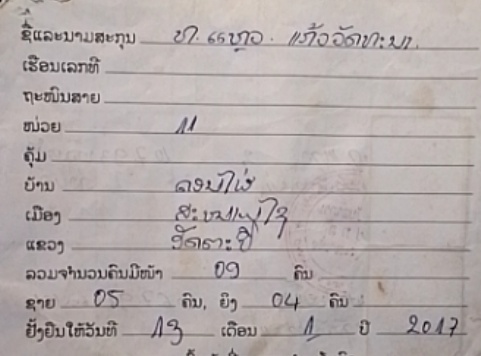 ຊື່ແລະນາມສະກຸນ ທ. ແກ້ວວັດທະນາ.
ເຮືອນເລກທີ
ຖະໜົນສາຍ
ໜ່ວຍ 11
ຄຸ້ມ
ບ້ານ ດອນໄຜ່
ເມືອງ ສະໝາມໄຊ
ແຂວງ ອັດຕະປື
ລວມຈຳນວນຄົນມີໜ້າ 09 ຄົນ
ຊາຍ 05 ຄົນ, ຍິງ 04 ຄົນ
ຢັ້ງຢືນໃຫ້ວັນທີ 13 ເດືອນ 1 ປີ 2017